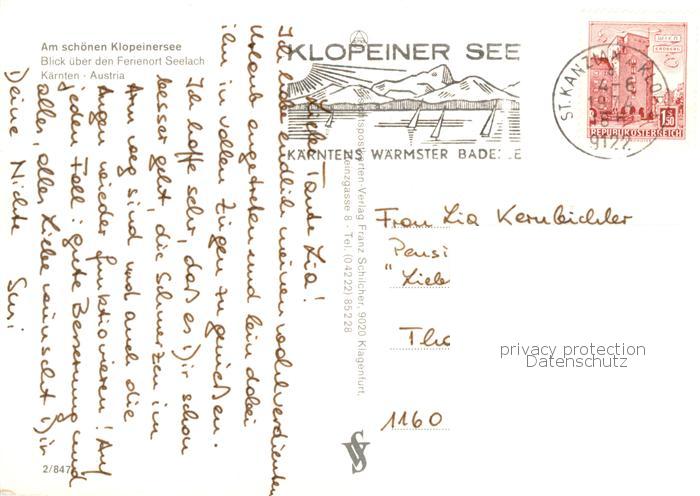 Am schönen Klopeinersee
Blick über den Ferienort Seelach
Kärnten · Austria
Liebe Tante Lia!
Ich habe endlich meinen wohlverdienten
Urlaub angetreten und bin dabei
ihn in vollen Zügen zu genießen.
Ich hoffe sehr, daß es Dir schon
besser geht, die Schmerzen im
Arm weg sind und auch die
Augen wieder funktionieren! Auf
jeden Fall: gute Besserung und
alles, alles Liebe wünscht Dir
Deine Nichte Susi
2/847
Ansichtspostkarten-Verlag Franz Schilcher, 9020 Klagenfurt,
gasse 8 · Tel. (04222) 85228
KLOPEINER SEE
KÄRNTENS WÄRMSTER BADE
ST. KANZIAN
9122
WIEN
ERDBERG
1.50
REPUBLIK ÖSTERREICH
Frau Lia Kernbichler
Pensi
"Lieb
Tha
1160
privacy protection
Datenschutz